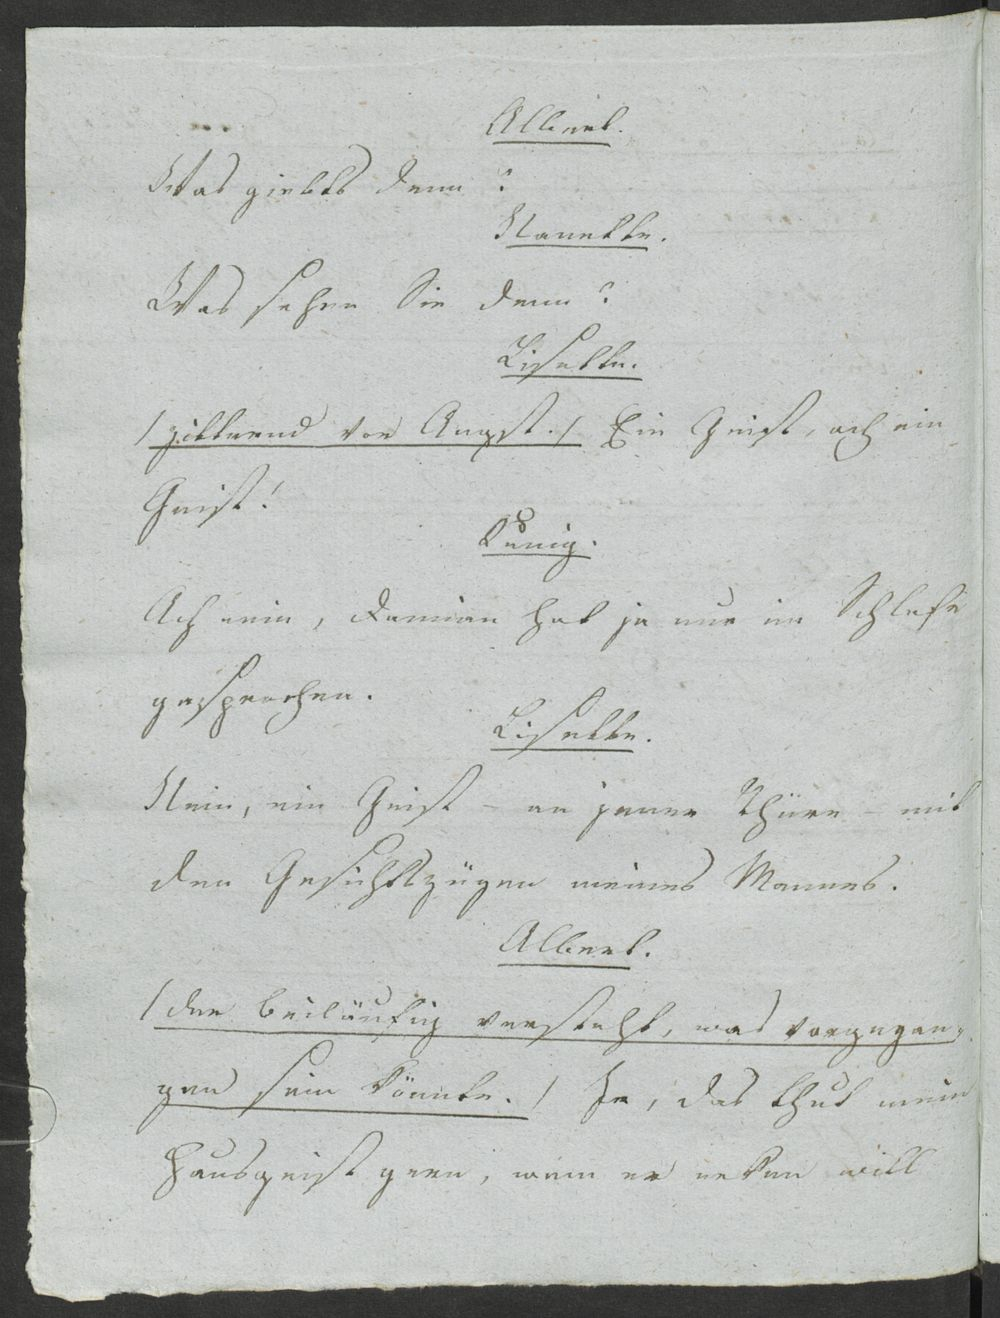 Albert.
Was giebts denn?
Nanette.
Was sehen Sie denn?
Lisette.
/ zitternd vor Angst. / Ein Geist, ach ein
Geist!
Kunig.
Ach nein, Damian hat ja nur im Schlafe
gesprochen.
Lisette.
Nein, ein Geist – an jener Thüre – mit
den Gesichtszügen meines Mannes.
Albert.
/ der beiläufig versteht, was vorgegan-
gen sein könnte. / Ja, das thut mein
Hausgeist gern, wenn er necken will